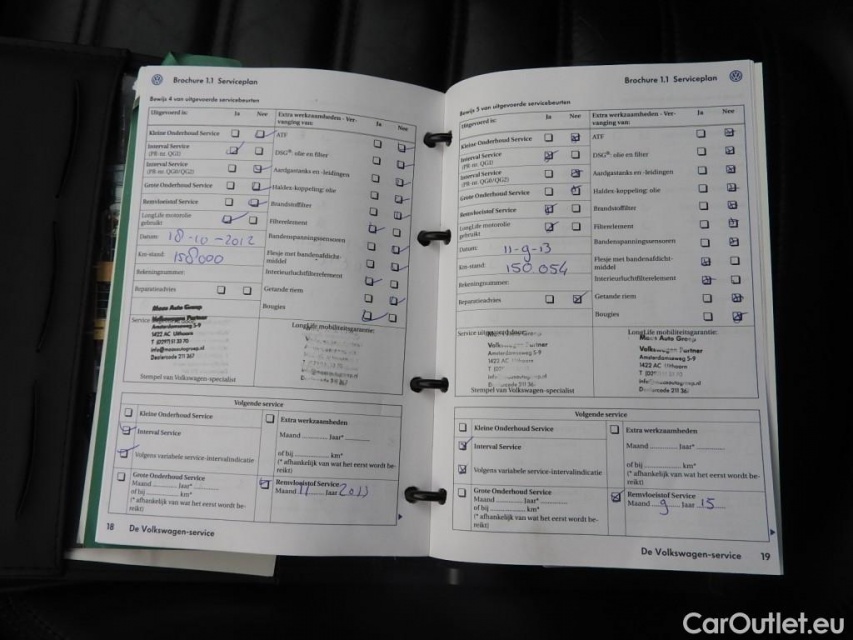 Brochure 1.1 Serviceplan
Bewijs 4 van uitgevoerde servicebeurten
Uitgevoerd is: Ja Nee
Kleine Onderhoud Service
Interval Service
(PR-nr. QG1)
Interval Service
(PR-nr. QG0/QG2)
Grote Onderhoud Service
Remvloeistof Service
LongLife motorolie
gebruikt
Datum: 18-10-2012
Km-stand: 158000
Rekeningnummer:
Reparatieadvies
Extra werkzaamheden - Ver-
vanging van: Ja Nee
ATF
DSG®: olie en filter
Aardgastanks en -leidingen
Haldex-koppeling: olie
Brandstoffilter
Filterelement
Bandenspanningssensoren
Flesje met bandenafdicht-
middel
Interieurluchtfilterelement
Getande riem
Bougies
Service
Maas Auto Group
Volkswagen Partner
Amsterdamseweg 5-9
1422 AC Uithoorn
Dealercode 211 367
Stempel van Volkswagen-specialist
LongLife mobiliteitsgarantie:
Volgende service
Kleine Onderhoud Service
Interval Service
Volgens variabele service-intervalindicatie
Grote Onderhoud Service
Maand Jaar*
of bij km*
(* afhankelijk van wat het eerst wordt be-
reikt)
Extra werkzaamheden
Maand Jaar*
of bij km*
(* afhankelijk van wat het eerst wordt be-
reikt)
Remvloeistof Service
Maand 11 Jaar 2013
18 De Volkswagen-service
Brochure 1.1 Serviceplan
Bewijs 5 van uitgevoerde servicebeurten
Uitgevoerd is: Ja Nee
Kleine Onderhoud Service
Interval Service
(PR-nr. QG1)
Interval Service
(PR-nr. QG0/QG2)
Grote Onderhoud Service
Remvloeistof Service
LongLife motorolie
gebruikt
Datum: 11-9-13
Km-stand: 150.054
Rekeningnummer:
Reparatieadvies
Extra werkzaamheden - Ver-
vanging van: Ja Nee
ATF
DSG®: olie en filter
Aardgastanks en -leidingen
Haldex-koppeling: olie
Brandstoffilter
Filterelement
Bandenspanningssensoren
Flesje met bandenafdicht-
middel
Interieurluchtfilterelement
Getande riem
Bougies
Service
Amsterdamseweg 5-9
1422 AC Uithoorn
Stempel van Volkswagen-specialist
LongLife mobiliteitsgarantie:
Maas Auto Group
Volkswagen Partner
Amsterdamseweg 5-9
1422 AC Uithoorn
Volgende service
Kleine Onderhoud Service
Interval Service
Volgens variabele service-intervalindicatie
Grote Onderhoud Service
Maand Jaar*
of bij km*
(* afhankelijk van wat het eerst wordt be-
reikt)
Extra werkzaamheden
Maand Jaar*
of bij km*
(* afhankelijk van wat het eerst wordt be-
reikt)
Remvloeistof Service
Maand 9 Jaar 15
De Volkswagen-service 19
CarOutlet.eu